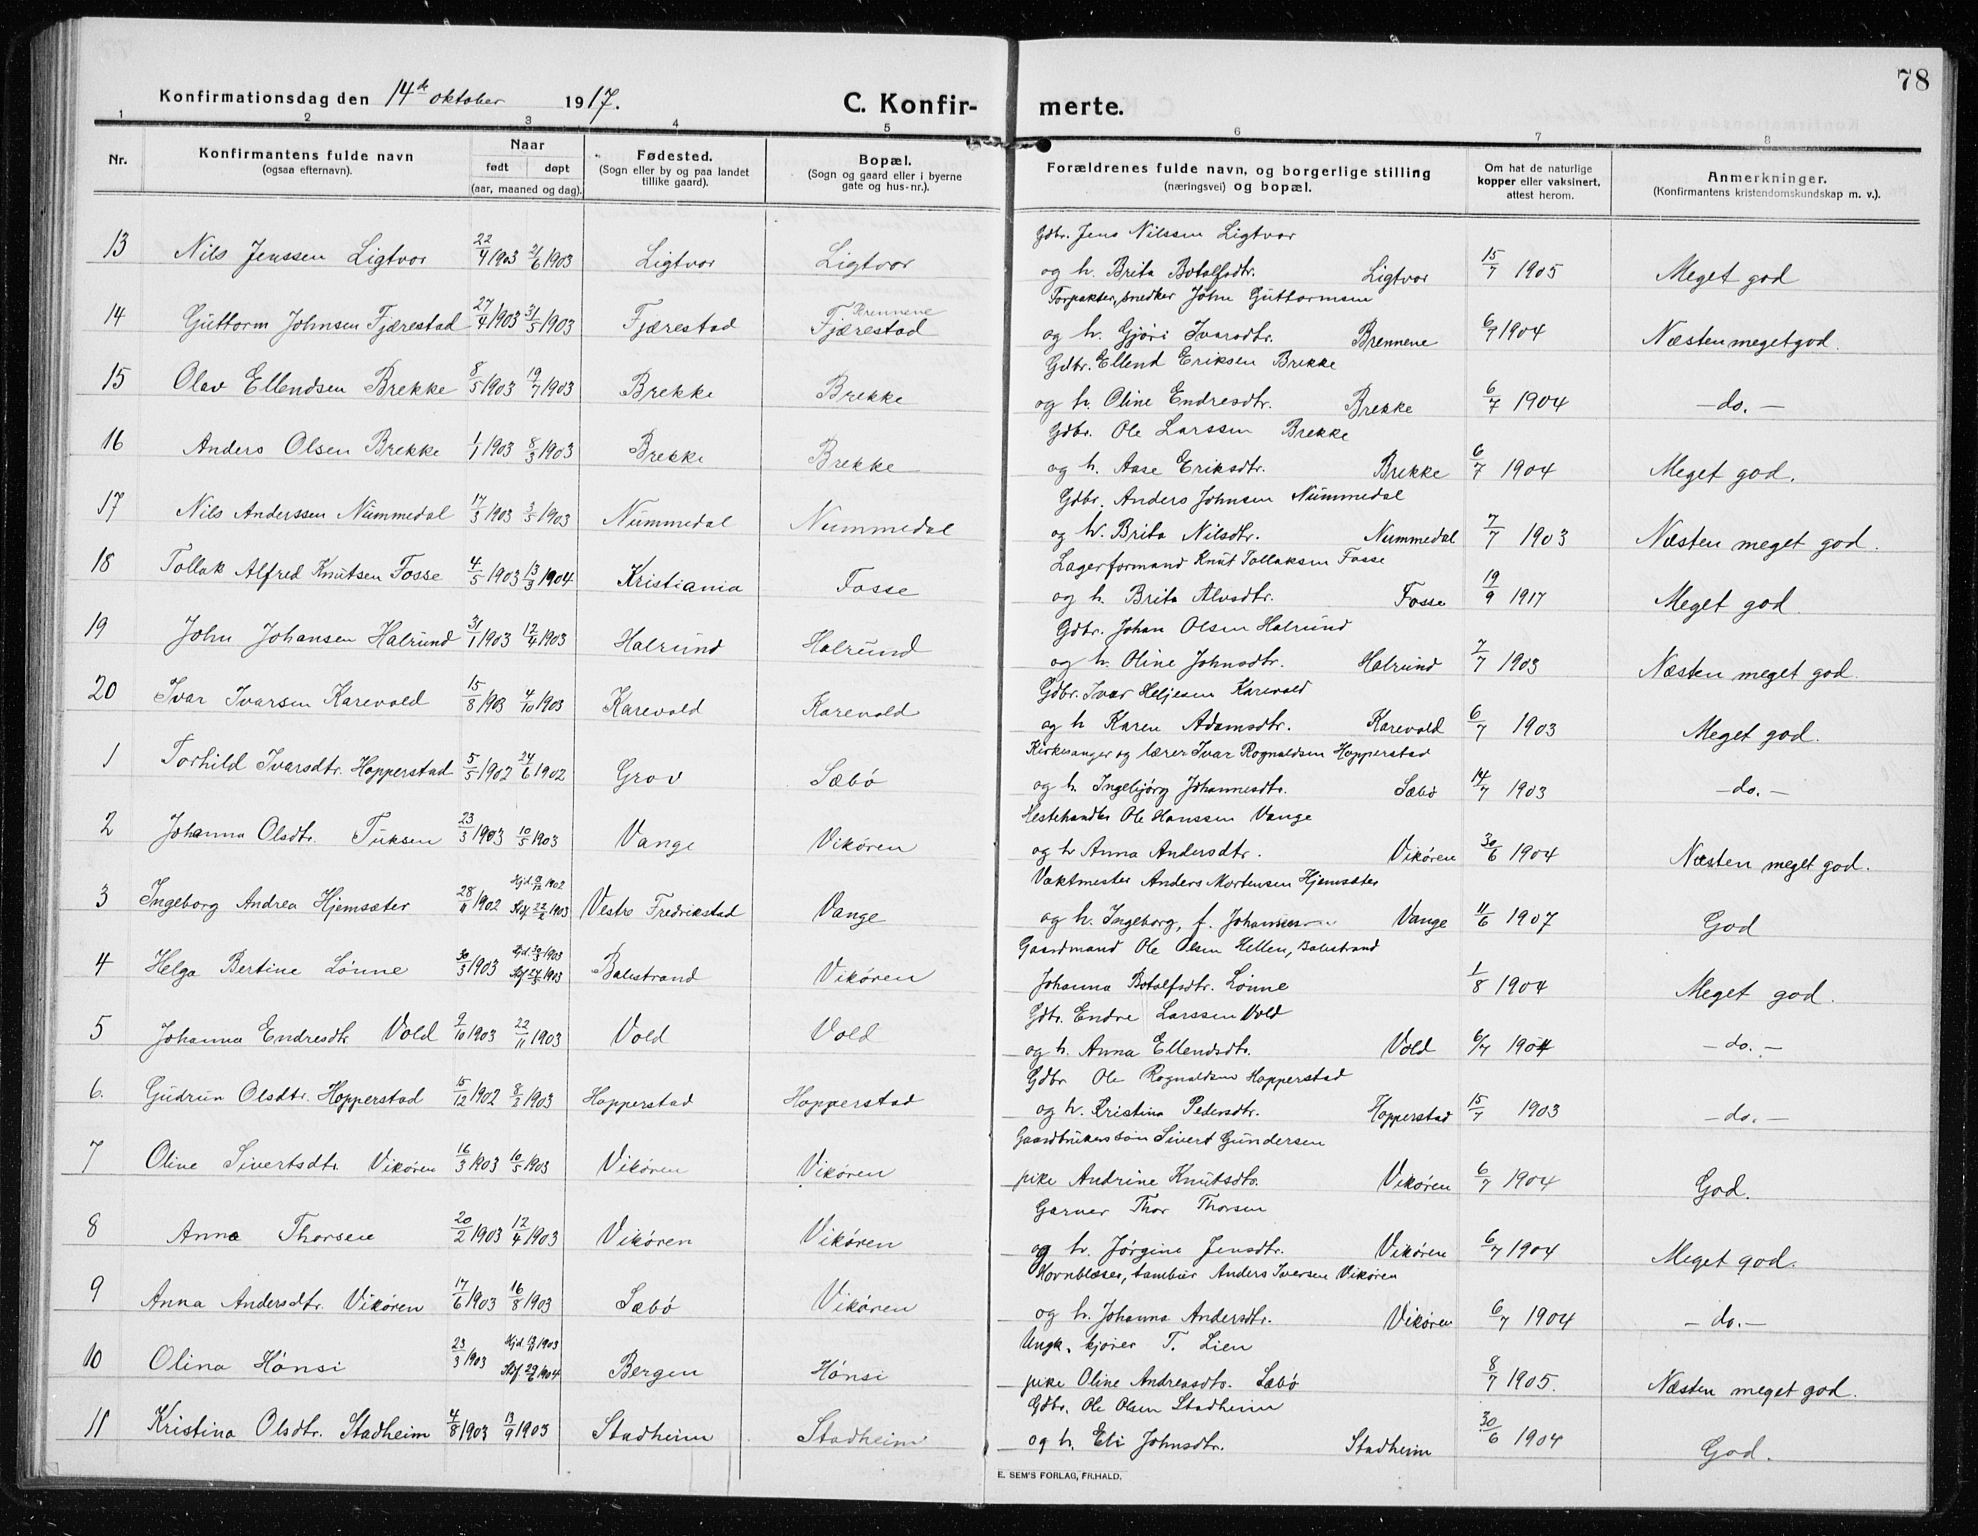 78
Konfirmationsdag den 14de oktober 1917.
C. Konfirmerte.
1 2 3 4 5 6 7 8
Nr.
Konfirmantens fulde navn
(ogsaa efternavn).
Naar
født døpt
(aar, maaned og dag).
Fødested.
(Sogn eller by og paa landet
tillike gaard).
Bopæl.
(Sogn og gaard eller i byerne
gate og hus-nr.).
Forældrenes fulde navn, og borgerlige stilling
(næringsvei) og bopæl.
Om hat de naturlige
kopper eller vaksinert,
attest herom.
Anmerkninger.
(Konfirmantens kristendomskundskap m. v.).
Gdbr. Jens Nilssen Ligtvor
13 Nils Jenssen Ligtvor 22/4 1903 21/6 1903 Ligtvor Ligtvor og h. Brita Botolfsdtr. Ligtvor 15/7 1905 Meget god
Forpakter, snedker John Guttormsen
Brennene
14 Guttorm Johnsen Fjærestad 27/4 1903 31/5 1903 Fjærestad Fjærestad og h. Gjøri Ivarsdtr. Brennene 6/7 1904 Næsten meget god.
Gdbr. Ellend Eriksen Brekke
15 Olav Ellendsen Brekke 8/5 1903 19/7 1903 Brekke Brekke og h. Oline Endresdtr. Brekke 6/7 1904 - do. -
Gdbr. Ole Larssen Brekke
16 Anders Olsen Brekke 1/1 1903 8/3 1903 Brekke Brekke og h. Aase Eriksdtr. Brekke 6/7 1904 Meget god.
Gdbr. Anders Johnsen Nummedal
17 Nils Anderssen Nummedal 17/3 1903 3/5 1903 Nummedal Nummedal og h. Brita Nilsdtr. Nummedal 7/7 1903 Næsten meget god.
Lagerformand Knut Tollaksen Fosse
18 Tollak Alfred Knutsen Fosse 4/5 1903 13/3 1904 Kristiania Fosse og h. Brita Alvsdtr. Fosse 19/9 1917 Meget god.
Gdbr. Johan Olsen Halrund
19 John Johansen Halrund 31/1 1903 12/4 1903 Halrund Halrund og h. Oline Johnsdtr. Halrund 7/7 1903 Næsten meget god.
Gdbr. Ivar Heljesen Karevold
20 Ivar Ivarsen Karevold 15/8 1903 4/10 1903 Karevold Karevold og h Karen Adamsdtr. Karevold 6/7 1903 Meget god.
Kirkesanger og lærer Ivar Rognaldsen Hopperstad
1 Torhild Ivarsdtr. Hopperstad 5/5 1902 24/6 1902 Grov Sæbø og h. Ingebjørg Johannesdtr. Sæbø 14/7 1903 - do. -
Hestehandler Ole Hanssen Vange
2 Johanna Olsdtr. Tuksen 23/3 1903 10/5 1903 Vange Vikøren og h Anna Andersdtr. Vikøren 30/6 1904 Næsten meget god.
Vaktmester Anders Mortensen Hjemsæter
3 Ingeborg Andrea Hjemsæter 28/11 1902 Hjd. 9/12 1902 Stf. 22/2 1903 Vestre Fredrikstad Vange og h. Ingeborg, f. Johannesen Vange 11/6 1907 God
Gaardmand Ole Olsen Hellen, Balestrand
4 Helga Bertine Lønne 30/3 1903 Hjd. 30/3 1903 Stf. 24/5 1903 Balestrand Vikøren Johanna Botolfsdtr. Lønne 1/8 1904 Meget god.
Gdbr. Endre Larssen Vold
5 Johanna Endresdtr Vold 9/10 1903 22/11 1903 Vold Vold og h. Anna Ellendsdtr. Vold 6/7 1904 - do. -
Gdbr Ole Rognaldsen Hopperstad
6. Gudrun Olsdtr. Hopperstad 15/12 1902 8/2 1903 Hopperstad Hopperstad og h. Kristina Pedersdtr. Hopperstad 15/7 1903 - do. -
Gaardbrukersøn Sivert Gundersen
7 Oline Sivertsdtr Vikøren 16/3 1903 10/5 1903 Vikøren Vikøren pike Andrine Knutsdtr. Vikøren 6/7 1904 God.
Garver Thor Thorsen
8 Anna Thorsen 20/2 1903 12/4 1903 Vikøren Vikøren og h. Jørgine Jensdtr. Vikøren 6/7 1904 Meget god.
Hornblæser, tambur Anders Iversen Vikøren
9 Anna Andersdtr. Vikøren 17/6 1903 16/8 1903 Sæbø Vikøren og h. Johanna Andersdtr. Vikøren 6/7 1904 - do. -
Ungk. kjører T. Lien
10 Olina Hønsi 23/3 1903 Hjd. 1903 Stf. 29/6 1904 Bergen Hønsi pike Oline Andreasdtr. Sæbø 8/7 1905. Næsten meget god.
Gdbr. Ole Olsen Stadheim
11 Kristina Olsdtr. Stadheim 4/8 1903 13/9 1903 Stadheim Stadheim og h. Eli Johnsdtr. Stadheim 30/6 1904 God.
E. SEM'S FORLAG, FR.HALD.